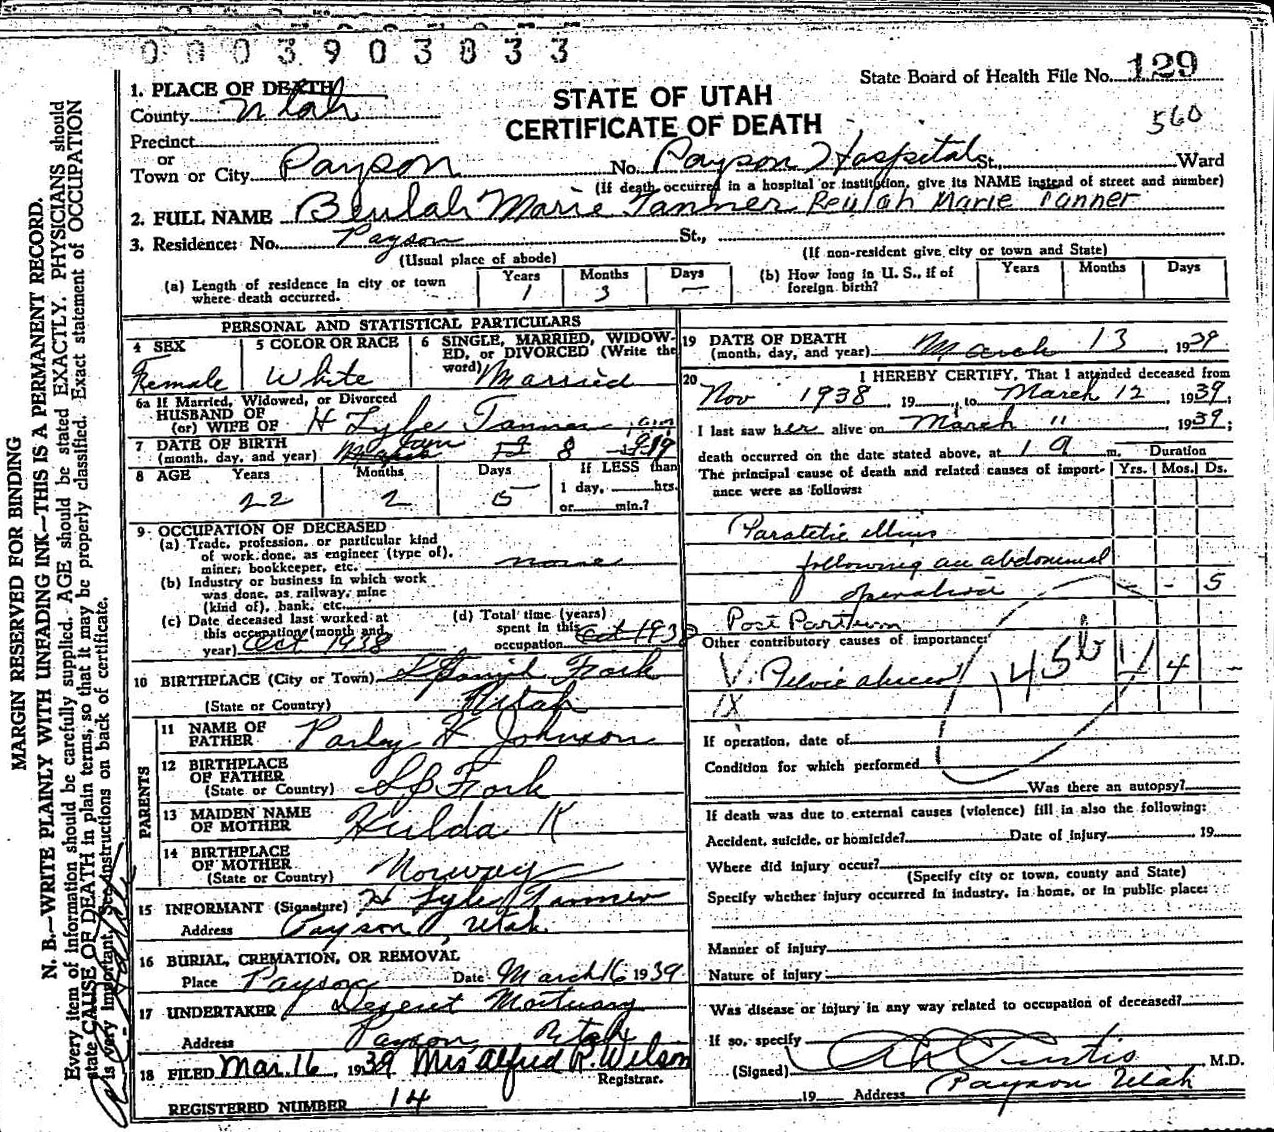 0003903833
State Board of Health File No. 129
1. PLACE OF DEATH
County Utah
STATE OF UTAH
CERTIFICATE OF DEATH
560
Precinct
or
Town or City Payson No. Payson Hospital St., Ward
(If death occurred in a hospital or institution, give its NAME instead of street and number)
2. FULL NAME Beulah Marie Tanner Beulah Marie Tanner
3. Residence: No. Payson St.,
(Usual place of abode) (If non-resident give city or town and State)
(a) Length of residence in city or town where death occurred. Years 1 Months 3 Days —
(b) How long in U. S., if of foreign birth? Years Months Days
PERSONAL AND STATISTICAL PARTICULARS
4 SEX Female
5 COLOR OR RACE White
6 SINGLE, MARRIED, WIDOWED, or DIVORCED (Write the word) Married
6a If Married, Widowed, or Divorced
HUSBAND OF
(or) WIFE OF H Lyle Tanner
7 DATE OF BIRTH
(month, day, and year) Jan 8
8 AGE Years 22 Months 2 Days 5 If LESS than 1 day, hrs. or min.?
9 OCCUPATION OF DECEASED
(a) Trade, profession, or particular kind of work done, as engineer (type of), miner, bookkeeper, etc. none
(b) Industry or business in which work was done, as railway, mine (kind of), bank, etc.
(c) Date deceased last worked at this occupation (month and year) Oct 1938
(d) Total time (years) spent in this occupation Oct 1938
10 BIRTHPLACE (City or Town) Spanish Fork
(State or Country) Utah
PARENTS
11 NAME OF FATHER Parley H Johnson
12 BIRTHPLACE OF FATHER
(State or Country) Sp Fork
13 MAIDEN NAME OF MOTHER Hulda K
14 BIRTHPLACE OF MOTHER
(State or Country) Norway
15 INFORMANT (Signature) H Lyle Tanner
Address Payson, Utah
16 BURIAL, CREMATION, OR REMOVAL
Place Payson Date March 16 1939
17 UNDERTAKER Deseret Mortuary
Address Payson Utah
18 FILED Mar. 16, 1939 Mrs Alfred R. Wilson
Registrar.
REGISTERED NUMBER 14
19 DATE OF DEATH
(month, day, and year) March 13, 1939
20 I HEREBY CERTIFY, That I attended deceased from
Nov 1938 19 , to March 12 1939
I last saw her alive on March " 1939;
death occurred on the date stated above, at 1 a m.
Duration
The principal cause of death and related causes of importance were as follows: Yrs. Mos. Ds.
Paralytic illius
following an abdominal
operation - - 5
Post Partum
Other contributory causes of importance:
Pelvic abscess 145b 1 4 -
If operation, date of
Condition for which performed
Was there an autopsy?
If death was due to external causes (violence) fill in also the following:
Accident, suicide, or homicide? Date of injury 19
Where did injury occur?
(Specify city or town, county and State)
Specify whether injury occurred in industry, in home, or in public place:
Manner of injury
Nature of injury
Was disease or injury in any way related to occupation of deceased?
If so, specify
(Signed) Curtis M.D.
19 Address Payson Utah
MARGIN RESERVED FOR BINDING
N. B.—WRITE PLAINLY WITH UNFADING INK—THIS IS A PERMANENT RECORD.
Every item of information should be carefully supplied. AGE should be stated EXACTLY. PHYSICIANS should
state CAUSE OF DEATH in plain terms, so that it may be properly classified. Exact statement of OCCUPATION
is very important. See instructions on back of certificate.